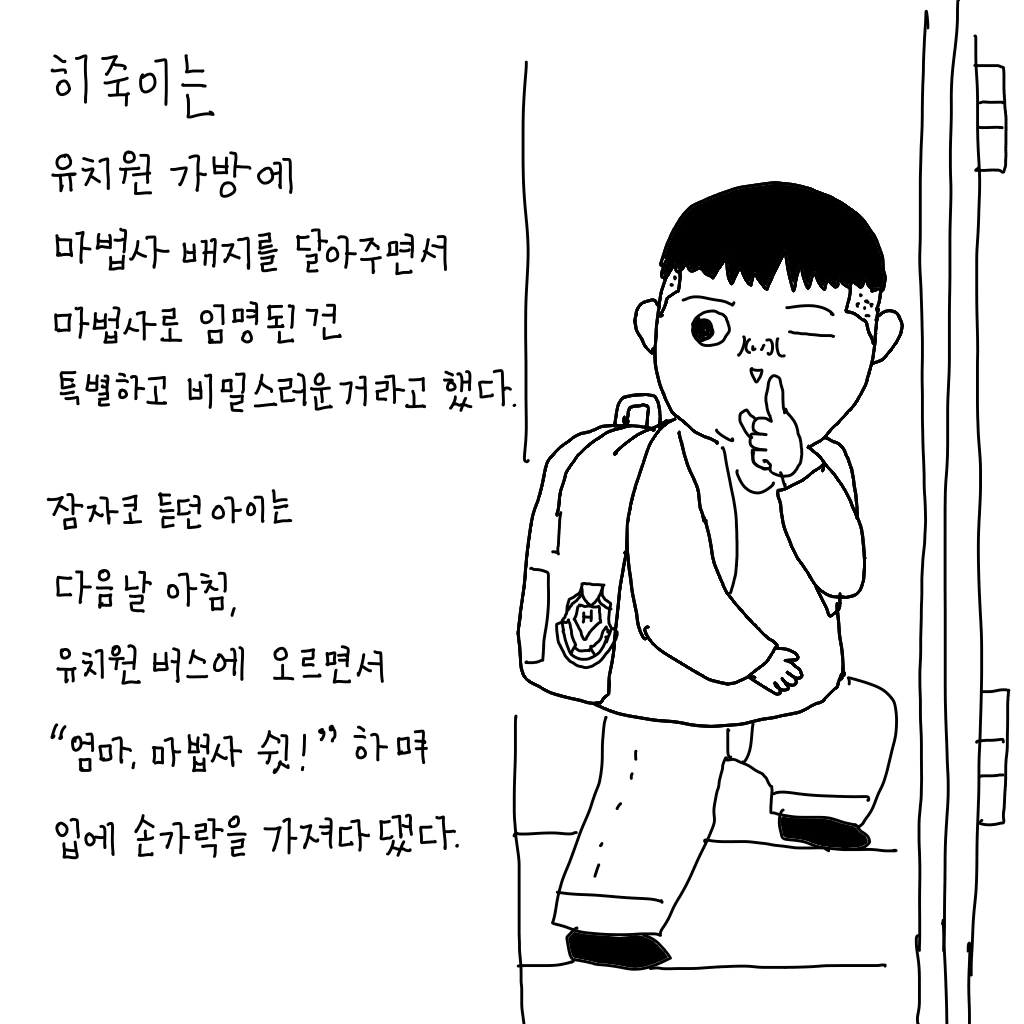 히죽이는
유치원 가방에
마법사 배지를 달아주면서
마법사로 임명된 건
특별하고 비밀스러운거라고 했다.
잠자코 듣던 아이는
다음날 아침,
유치원 버스에 오르면서
“엄마, 마법사 쉿!” 하며
입에 손가락을 가져다 댔다.
H